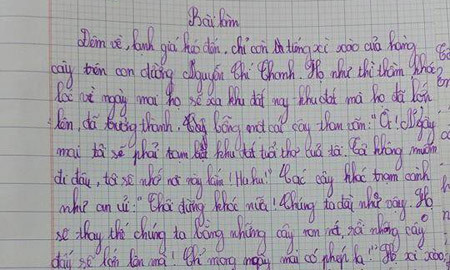 Bài làm
Đêm về, lạnh giá kéo đến, chỉ còn tiếng xì xào của hàng
cây trên con đường Nguyễn Chí Thanh. Họ như thì thầm khóc
lóc về ngày mai họ sẽ xa khu đất này khu đất mà họ đã lớn
lên, đã trưởng thành. Cây bỗng một cái cây than vãn: "Ôi!
mai tôi sẽ phải tạm biệt khu đất tuổi thơ của tôi. Tôi không muốn
đi đâu, tôi sẽ nhớ nơi này lắm! Hu hu!" Các cây khác xung quanh
như an ủi: "Thôi đừng khóc nữa! Chúng ta đã như vậy. Họ
sẽ thay thế chúng ta bằng những cây non nớt, rồi những cây
đấy sẽ lớn lên mà! Chỉ mong ngày mai có phép lạ!" Họ xì xào,